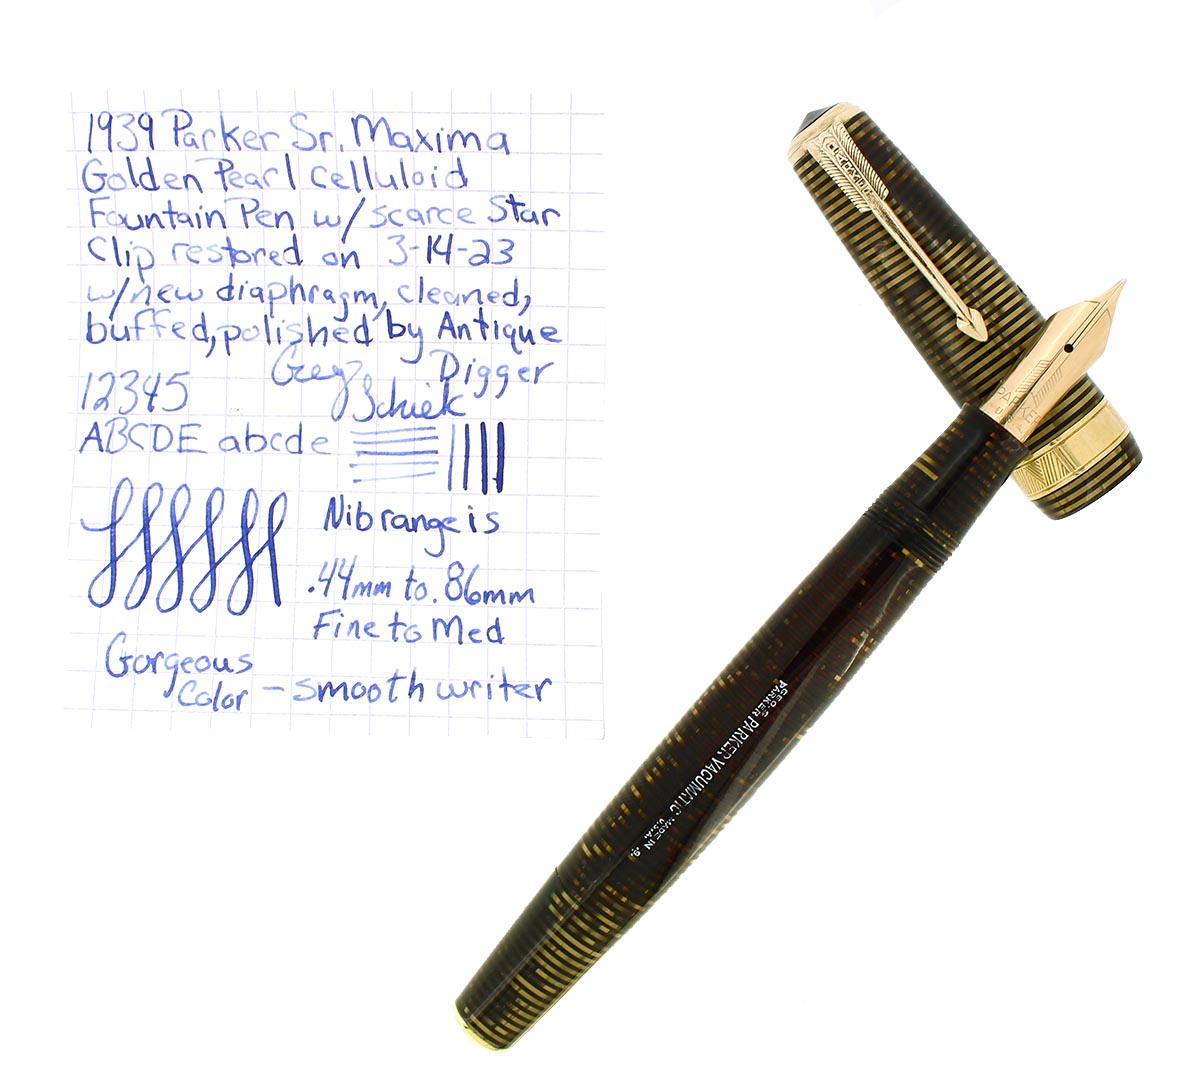 1939 Parker Sr. Maxima
Golden Pearl celluloid
Fountain Pen w/ scarce Star
Clip restored on 3-14-23
w/new diaphragm, cleaned,
buffed, polished by Antique
Digger
Greg
Schiek
12345
ABCDE abcde
Nib range is
.44mm to .86mm
Fine to Med
Gorgeous
Color - smooth writer
PARKER
PARKER
U.S.A.
GEO. S.
PARKER
PARKER VACUMATIC
MADE IN
U.S.A.
.9.